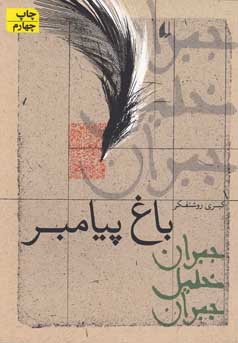 چاپ
چهارم
جبران
خلیل
جبران
کبری روشنفکر
باغ پیامبر
جبران
خلیل
جبران